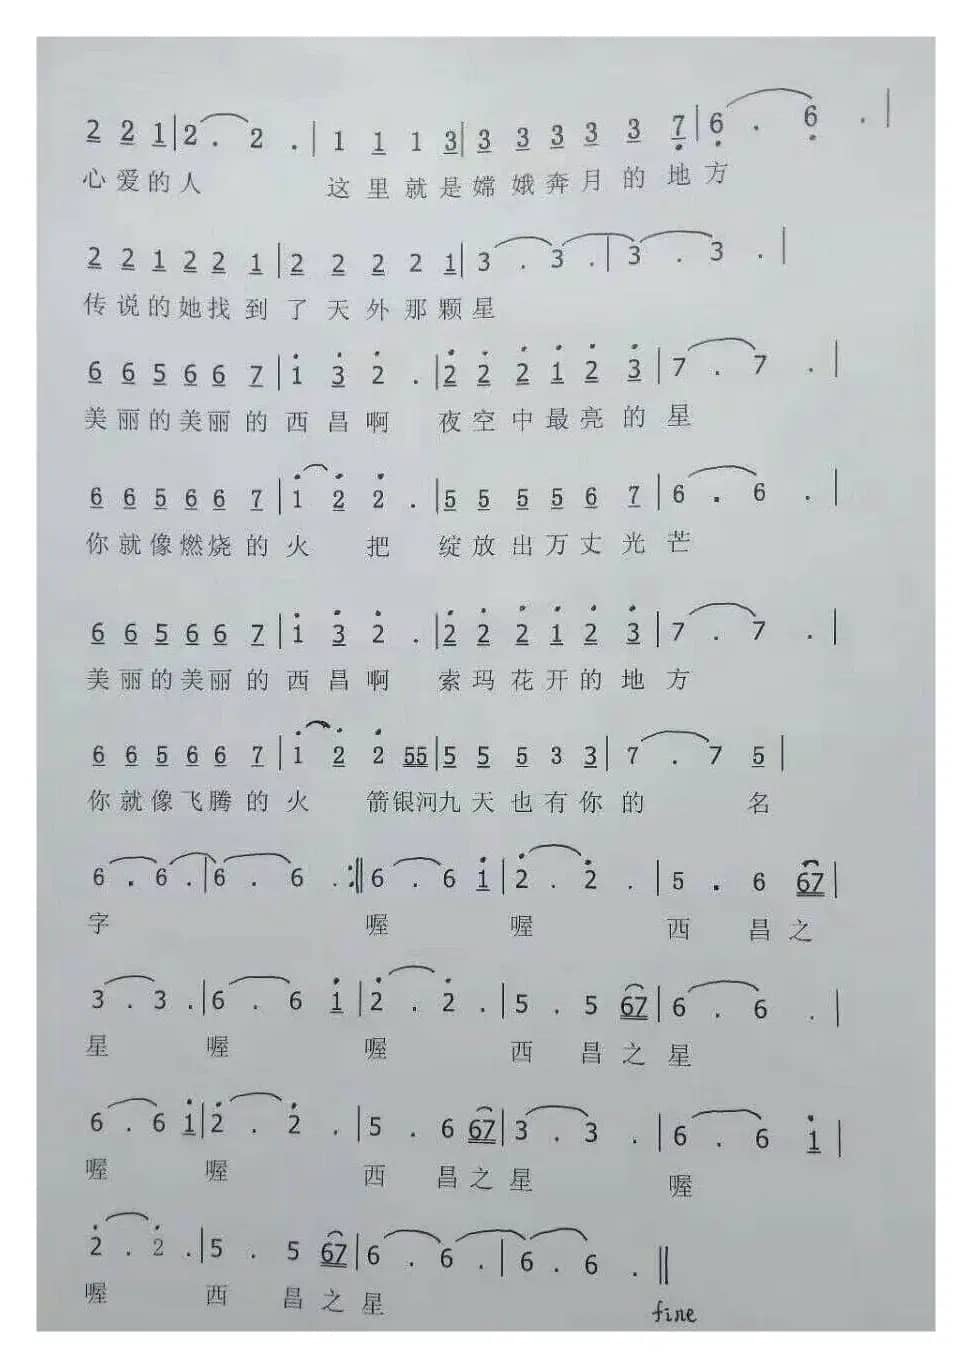 2 2 1|2 . 2 . |1 1 1 3|3 3 3 3 3 7|6 . 6 . |
心爱的人 这里就是嫦娥奔月的地方
2 2 1 2 2 1|2 2 2 2 1|3 . 3 .|3 . 3 .|
传说的她找到了天外那颗星
6 6 5 6 6 7|1 3 2 .|2 2 2 1 2 3|7 . 7 .|
美丽的美丽的西昌啊 夜空中最亮的星
6 6 5 6 6 7|1 2 2 .|5 5 5 5 6 7|6 . 6 .|
你就像燃烧的火 把 绽放出万丈光芒
6 6 5 6 6 7|1 3 2 .|2 2 2 1 2 3|7 . 7 .|
美丽的美丽的西昌啊 索玛花开的地方
6 6 5 6 6 7|1 2 2 55|5 5 5 3 3|7 . 7 5|
你就像飞腾的火 箭银河九天也有你的 名
6 . 6 .|6 . 6 .:||6 . 6 1|2 . 2 .|5 . 6 67|
字 喔 喔 西 昌之
3 . 3 .|6 . 6 1|2 . 2 .|5 . 5 67|6 . 6 .|
星 喔 喔 西 昌之星
6 . 6 1|2 . 2 .|5 . 6 67|3 . 3 .|6 . 6 1|
喔 喔 西 昌之星 喔
2 . 2 .|5 . 5 67|6 . 6 .|6 . 6 .||
喔 西 昌之星
fine